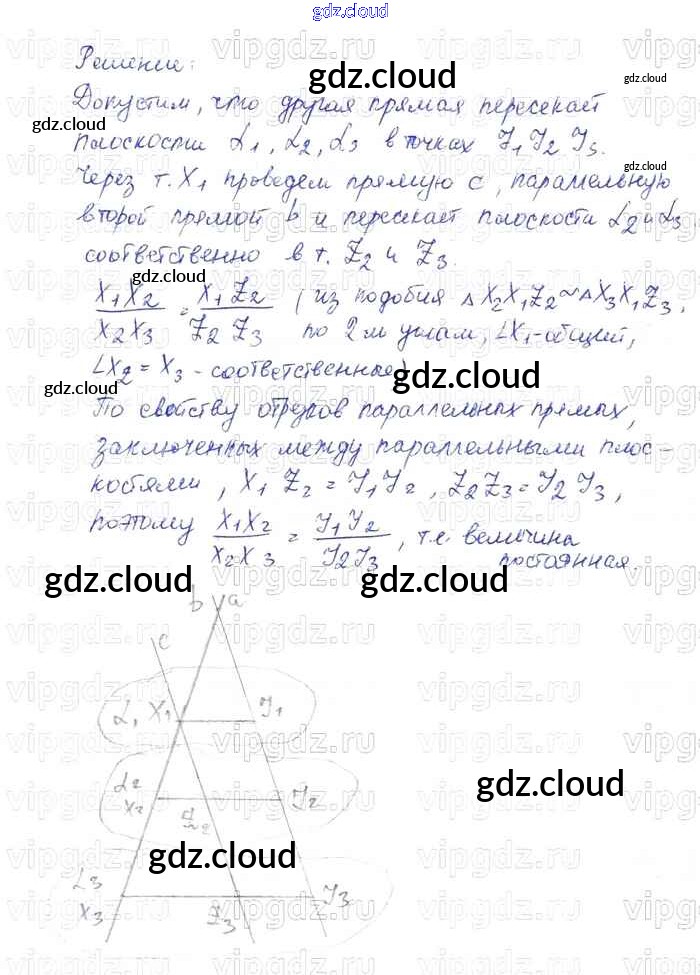 gdz.cloud
Решение:
gdz.cloud
gdz.cloud
Допустим, что другая прямая пересекает
gdz.cloud
плоскости L1, L2, L3 в точках Y1 Y2 Y3.
gdz.cloud
Через т. X1 проведем прямую c, параллельную
второй прямой b и пересекает плоскости L2 и L3
соответственно в т. Z2 и Z3.
gdz.cloud
X1X2/X2X3 = X1Z2/Z2Z3 (из подобия △X2X1Z2 ~ △X3X1Z3,
по 2м углам, ∠X1-общий,
∠X2 = X3 - соответственные)
gdz.cloud
gdz.cloud
По свойству отрезков параллельных прямых,
заключенных между параллельными плос-
костями, X1 Z2 = Y1Y2, Z2Z3 = Y2Y3,
поэтому X1X2/X2X3 = Y1Y2/Y2Y3, т.е. величина
постоянная.
gdz.cloud
gdz.cloud
b a
c
L1 X1 Y1
L2
X2 Z2 Y2
gdz.cloud
gdz.cloud
L3
X3 Z3 Y3
vipgdz.ru